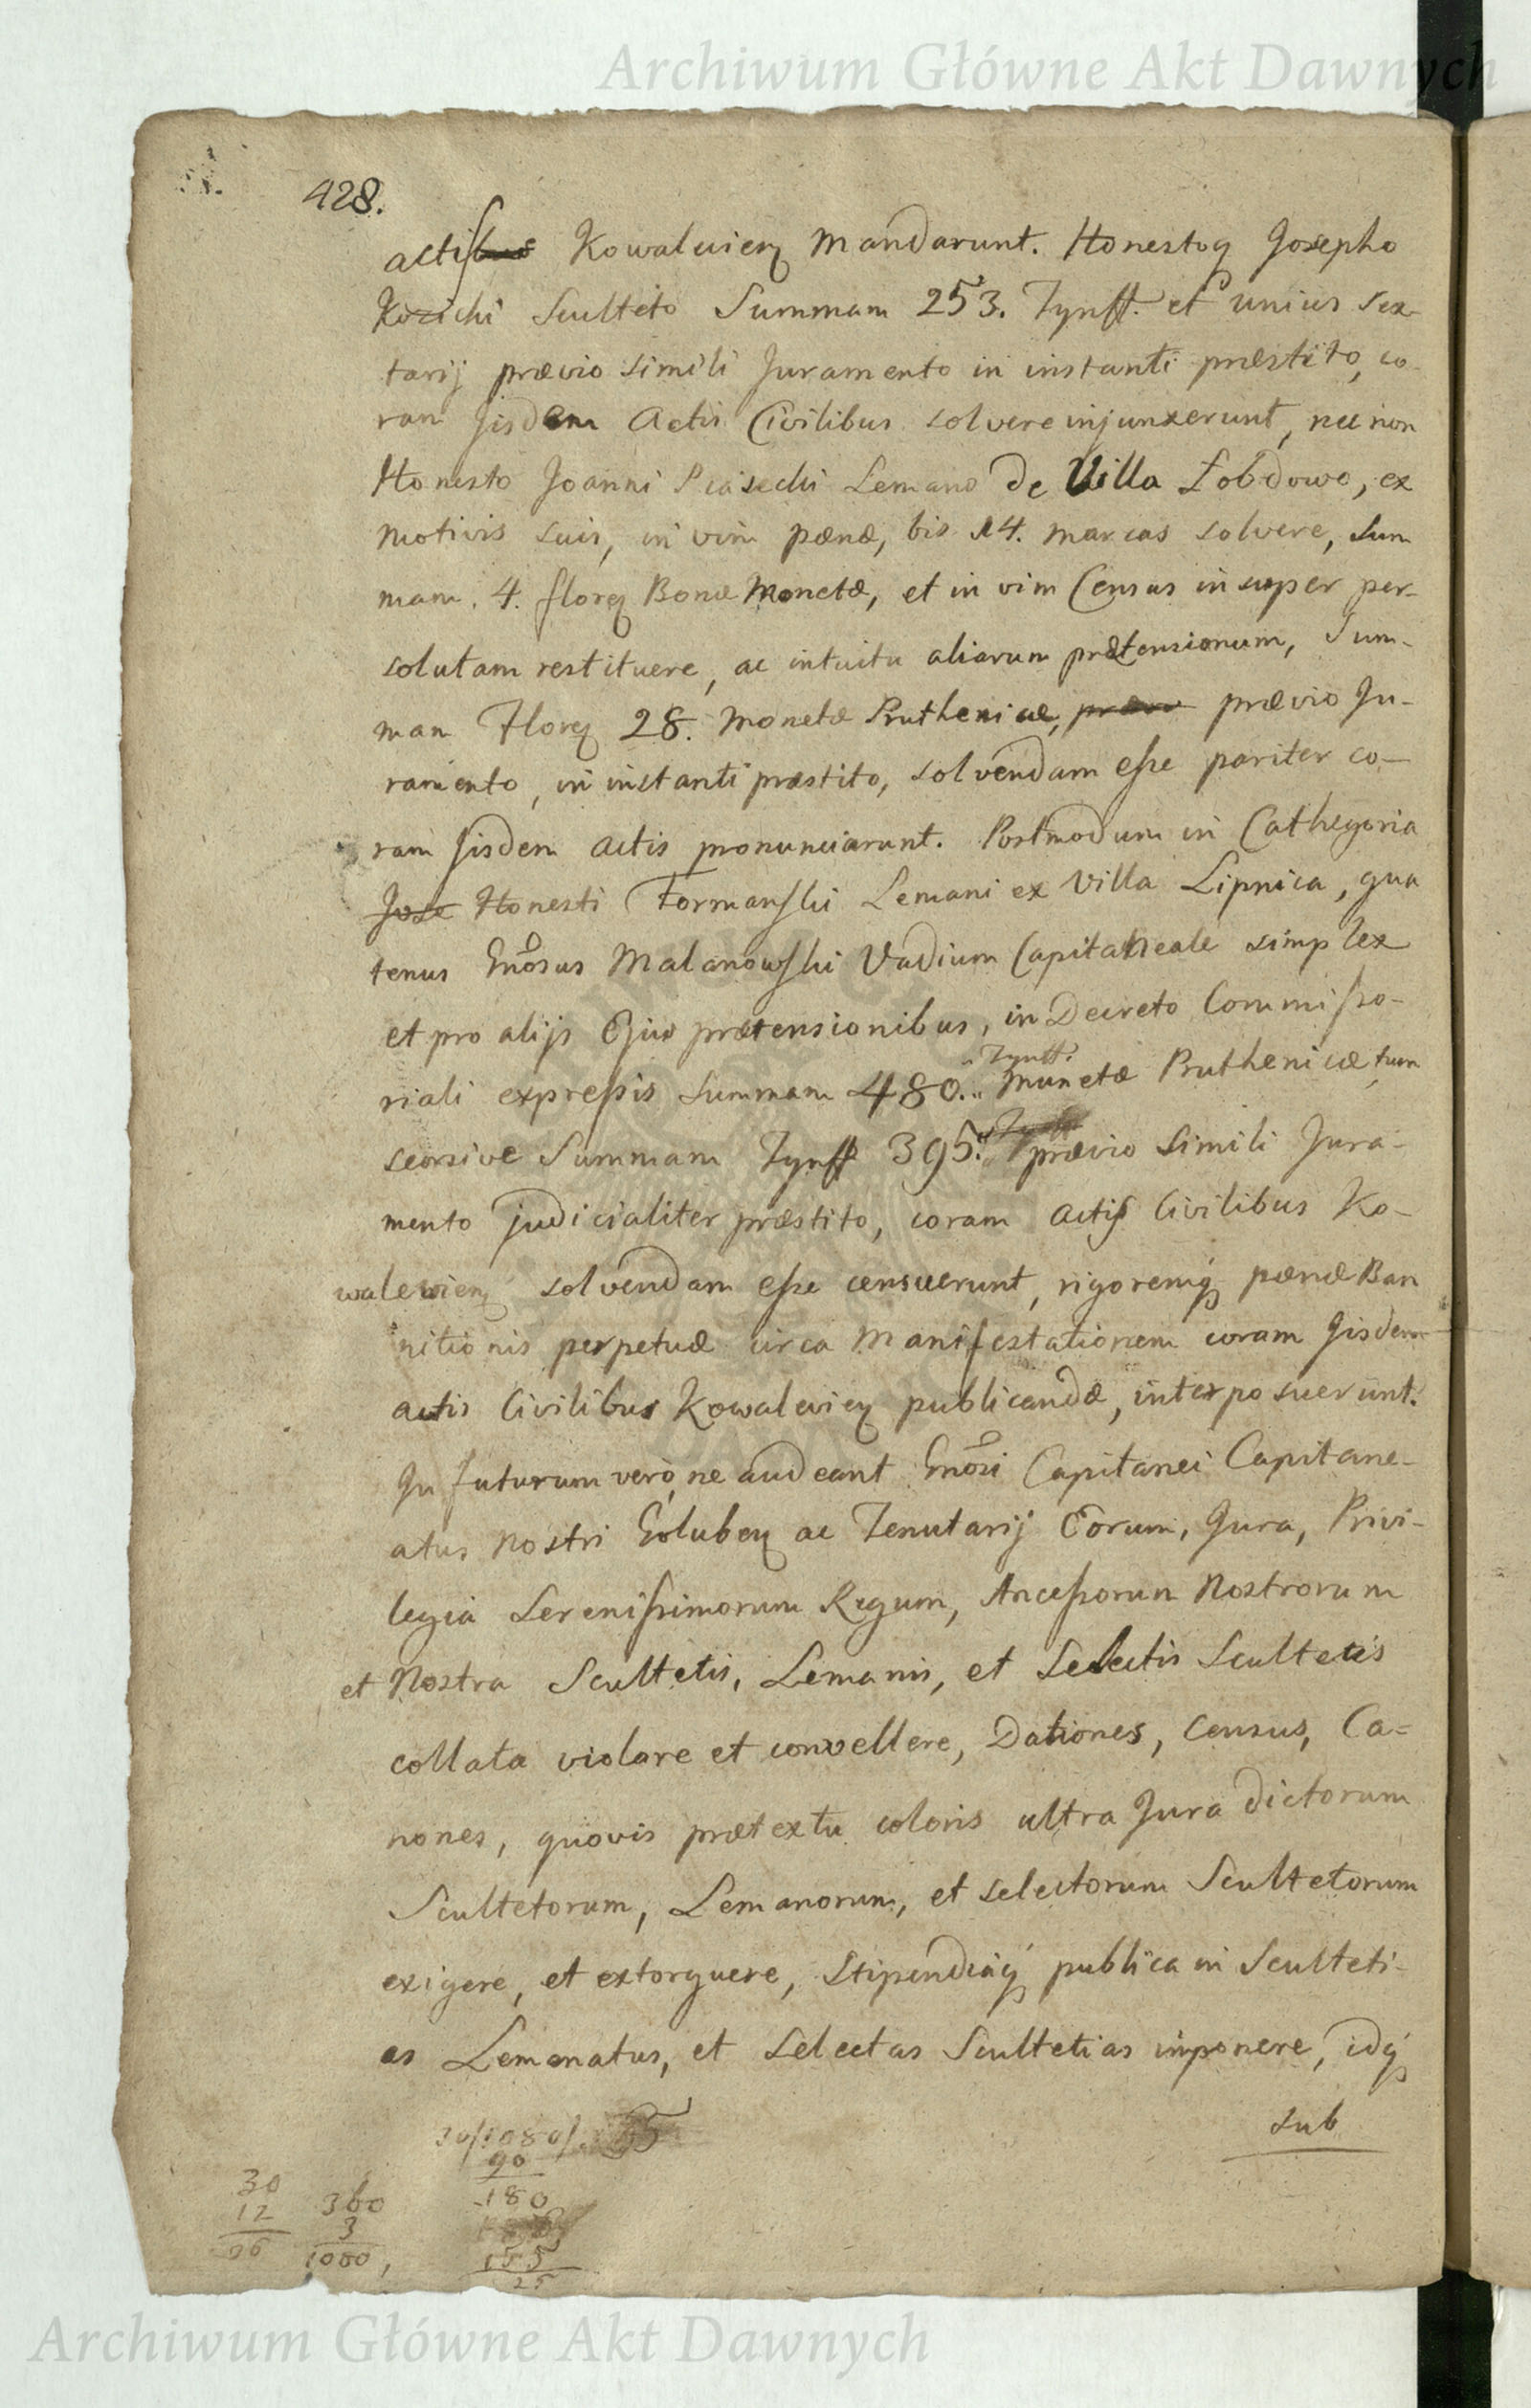 Archiwum Główne Akt Dawnych
428.
actis Kowalevien Mandarunt. Honestoq Josepho
Kozichi Sculteto Summam 253. Tynff. et unius sex-
tarij prævio simili Juramento in instanti præstito, co-
ram Jisdem Actis Civilibus solvere injunxerunt, nec non
Honesto Joanni Piasechi Lemano de Villa Łobdowo, ex
motivis suis, in vim pænæ, bis 14. marcas solvere, sum
mam. 4. floreq Bonæ Monetæ, et in vim Census insuper per-
solutam restituere, ac intuitu aliarum prætensionum, Sum-
mam Floreq 28. Monetæ Pruthenicæ, prævio Ju-
ramento, in instanti præstito, solvendam esse pariter co-
ram Jisdem actis pronunciarunt. Postmodum in Cathegoria
Jose Honesti Formanski Lemani ex Villa Lipnica, qua
tenus Gnosus Malanowski Vadium Capitaneale simplex
et pro alijs Ejus prætensionibus, in Decreto Commisso-
riali expressis summam 480. Tynff. munetæ Pruthenicæ, tum
seorsive Summam Tynff 395. prævio simili Jura-
mento judicialiter præstito, coram actis Civilibus Ko-
walevien solvendam esse censuerunt, rigoremq pænæ Ban
nitionis perpetuæ circa Manifestationem coram Jisdem
actis Civilibus Kowalevien publicandæ, interposuerunt.
In futurum verò, ne audeant Gnosi Capitanei Capitane-
atus Nostri Golubeñ ac Tenutarij Eorum, Jura, Privi-
legia Serenissimorum Regum, Ancessorum Nostrorum
et Nostra Scultetis, Lemanis, et Selectis Scultetis
collata violare et convellere, Dationes, Census, Ca=
nones, quovis prætextu coloris ultra Jura dictorum
Scultetorum, Lemanorum, et selectorum Scultetorum
exigere, et extorquere, Stipendiaq publica in Sculteti-
as Lemanatus, et Selectas Scultetias imponere, idq
sub
30/1080/. 35
90
180
155
25
30
12
96
360
3
1080,
Archiwum Główne Akt Dawnych